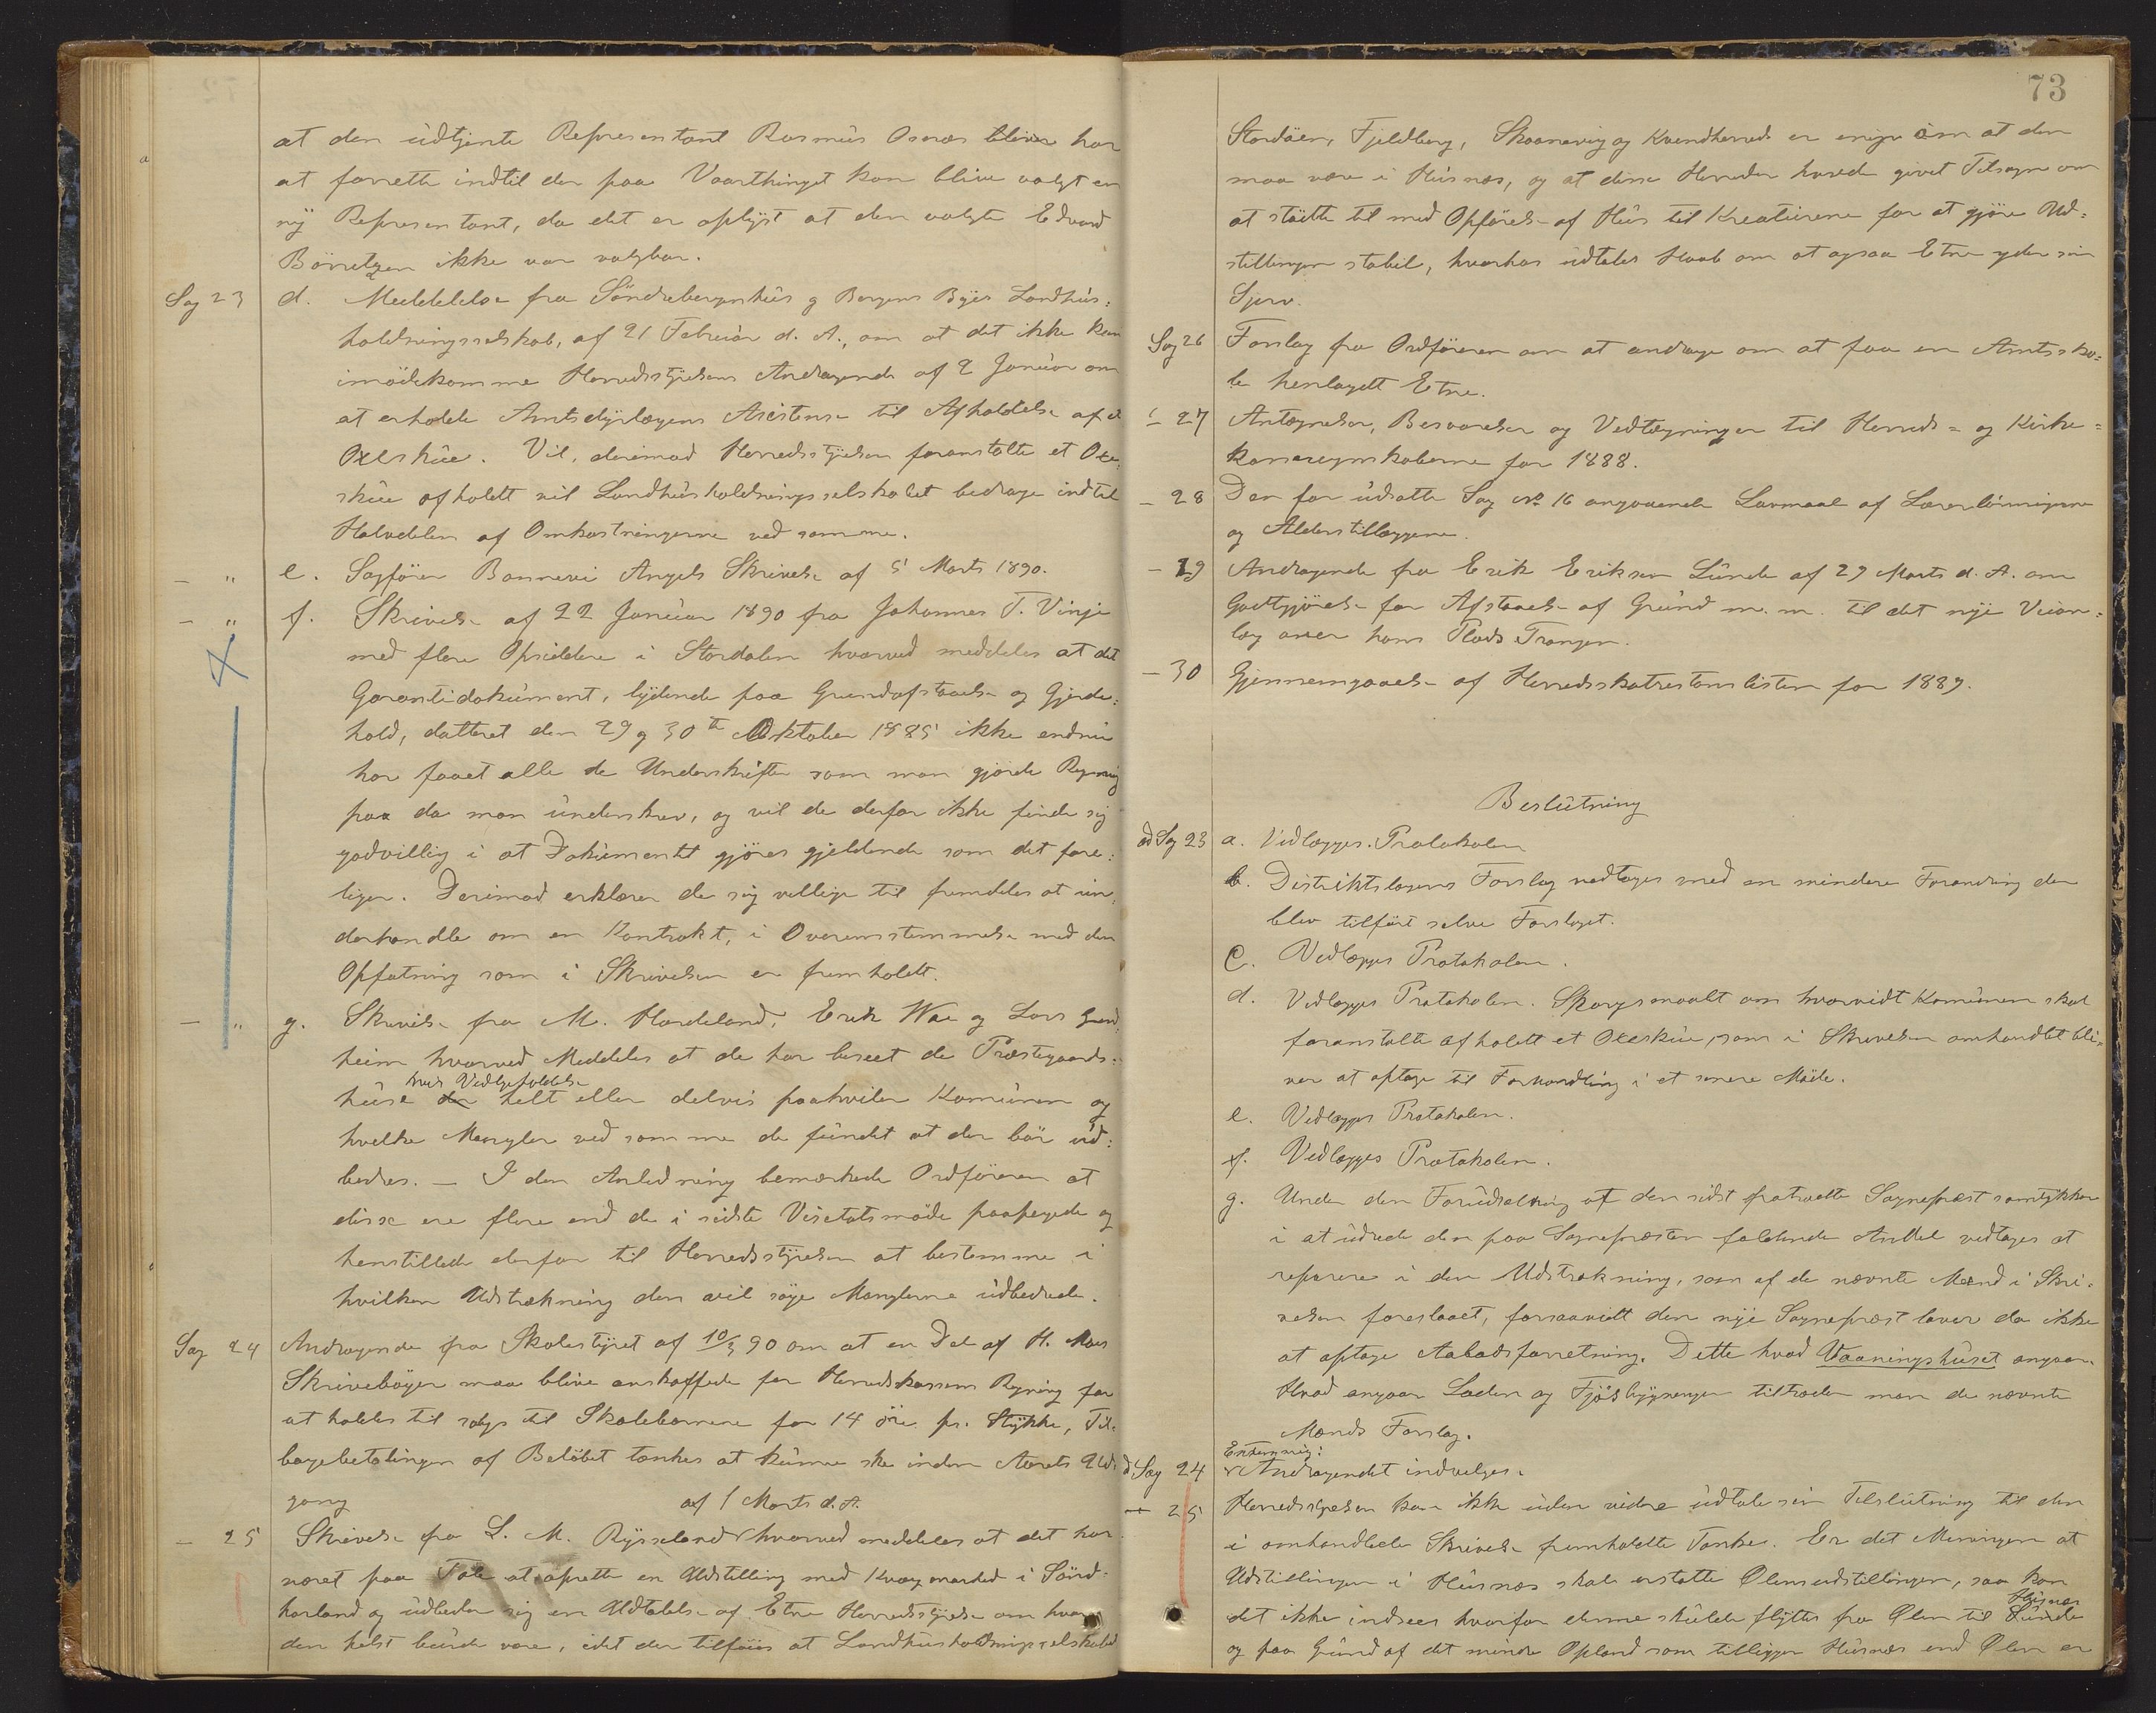 at den udtjente Representant Rasmus Osnæs bliver har
at forrette indtil der paa Vaarthinget kan blive valgt en
ny Representant, da det er oplyst at den valgte Edvard
Børretzen ikke var valgbar.
Sag 23 d. Meddelelse fra Søndrebergenhus og Bergens Byes Landhus=
holdningsselskab, af 21 Februar d. A., om at det ikke kan
imødekomme Herredsstyrelsens Andragende af 2 Januar om
at erholde Amtsdyrlægens Asistense til Afholdelse af et
Oxeskue. Vil, derimod Herredsstyrelsen foranstalte et Oxe=
skue afholdt vil Landhusholdningsselskabet bedrage indtil
Halvdelen af Omkostningerne ved samme.
— " e. Sagfører Bonnevie Angels Skrivelse af 5 Marts 1890.
— " f. Skrivelse af 22 Januar 1890 fra Johannes T. Vinje
med flere Opsiddere i Stordalen hvorved meddeles at det
Garantidokument, lydende paa Grundafstaaelse og Gjerde=
hold, datteret den 29 og 30te Oktober 1885 ikke endnu
har faaet alle de Underskrifter som man gjorde Regning
paa da man underskrev, og vil de derfor ikke finde sig
godvillig i at Dokumentet gjøres gjeldende som det fore=
liger. Derimod erklærer de sig villige til fremdeles at un=
derhandle om en Kontrakt, i Overensstemmelse med den
Opfatning som i Skrivelsen er fremholdt.
— " g. Skrivelse fra M. Hardeland, Erik Wae og Lars Grind=
heim hvorved Meddeles at de har beseet de Præstegaards=
hvis Vedligeholdelse
huse der helt eller delvis paahviler Komunen og
hvilke Mangler ved samme de fundet at der bør ud=
bedres. — I den Anledning bemærkede Ordføreren at
disse ere flere end de i sidste Visetatsmøde paapegede og
henstillede derfor til Herredsstyrelsen at bestemme i
hvilken Udstrækning den vil søge Manglerne udbedrede.
Sag 24 Andragende fra Skolestyret af 10/3 90 om at en Del af H. Moes
Skrivebøger maa blive anskaffede for Herredskassens Regning for
at holdes til salgs til Skolebørnene for 14 øre pr. Stykke, Til=
bagebetalingen af Beløbet tænkes at kunne ske inden Aarets Ud=
gang
af 1 Marts d. A.
— 25 Skrivelse fra L. M. Rysseland hvorved meddeles at det har
været paa Tale at oprette en Udstilling med Kvægmarked i Sønd=
horland og udbeder sig en Udtalelse af Etne Herredsstyrelse om hvor
den helst burde være, idet der tilføies at Landhusholdningsselskabet
73
Stordøen, Fjeldberg, Skaanevig og Kvindherred er enige om at den
maa være i Husnæs, og at disse Herreder havde givet Tilsagn om
at støtte til med Opførelse af Hus til Kreaturene for at gjøre Ud=
stillingen stabil, hvorhos udtales Haab om at ogsaa Etne yder sin
Sjerv.
Sag 26 Forslag fra Ordføreren om at andrage om at faa en Amtssko=
le henlagdt Etne.
— 27 Antegnelser, Besvarelser og Vedtegninger til Herreds= og Kirke=
kasseregnskaberne for 1888.
— 28 Den før udsatte Sag No 16 angaaende Lavmaal af Lærerlønningerne
og Alderstillæggene.
— 29 Andragende fra Erik Eriksen Lunde af 29 Marts d. A. om
Godtgjørelse for Afstaaelse af Grund m. m. til det nye Veian=
læg over hans Plads Trangen.
— 30 Gjennemgaaelse af Herredsskatrestanselisten for 1889.
Beslutning
ad Sag 23 a. Vedlægges Protokolen
b. Distriktslægens Forslag vedtages med en mindere Forandring der
blev tilført selve Forslaget.
c. Vedlægges Protokolen.
d. Vedlægges Protokolen. Spørgsmaalet om hvorvidt Komunen skal
foranstalte afholdt et Oxeskue, som i Skrivelsen omhandlet bli=
ver at optage til Forhandling i et senere Møde.
e. Vedlægges Protokolen.
f. Vedlægges Protokolen.
g. Under den Forudsætning at den sidst fratraadte Sognepræst samtykker
i at udrede den paa Sognepræsten faldende Andel vedtages at
reparere i den Udstrækning, som af de nævnte Mænd i Skri=
velsen foreslaaet, forsaavidt den nye Sognepræst lover da ikke
at optage Aabodsforretning. Dette hvad Vaaningshuset angaar.
Hvad angaar Laden og Fjøsbygningen tiltræder man de nævnte
Mænds Forslag.
Enstemmig:
ad Sag 24 Andragendet indvilges.
— 25 Herredsstyrelsen kan ikke uden videre udtale sin Tilslutning til den
i omhandlede Skrivelse fremholdte Tanke. Er det Meningen at
Udstillingen i Husnæs skal erstatte Ølensudstillingen, saa kan
Husnæs
det ikke indsees hvorfor denne skulde flyttes fra Ølen til Sunde
og paa Grund af det mindre Opland som tilligger Husnæs end Ølen er